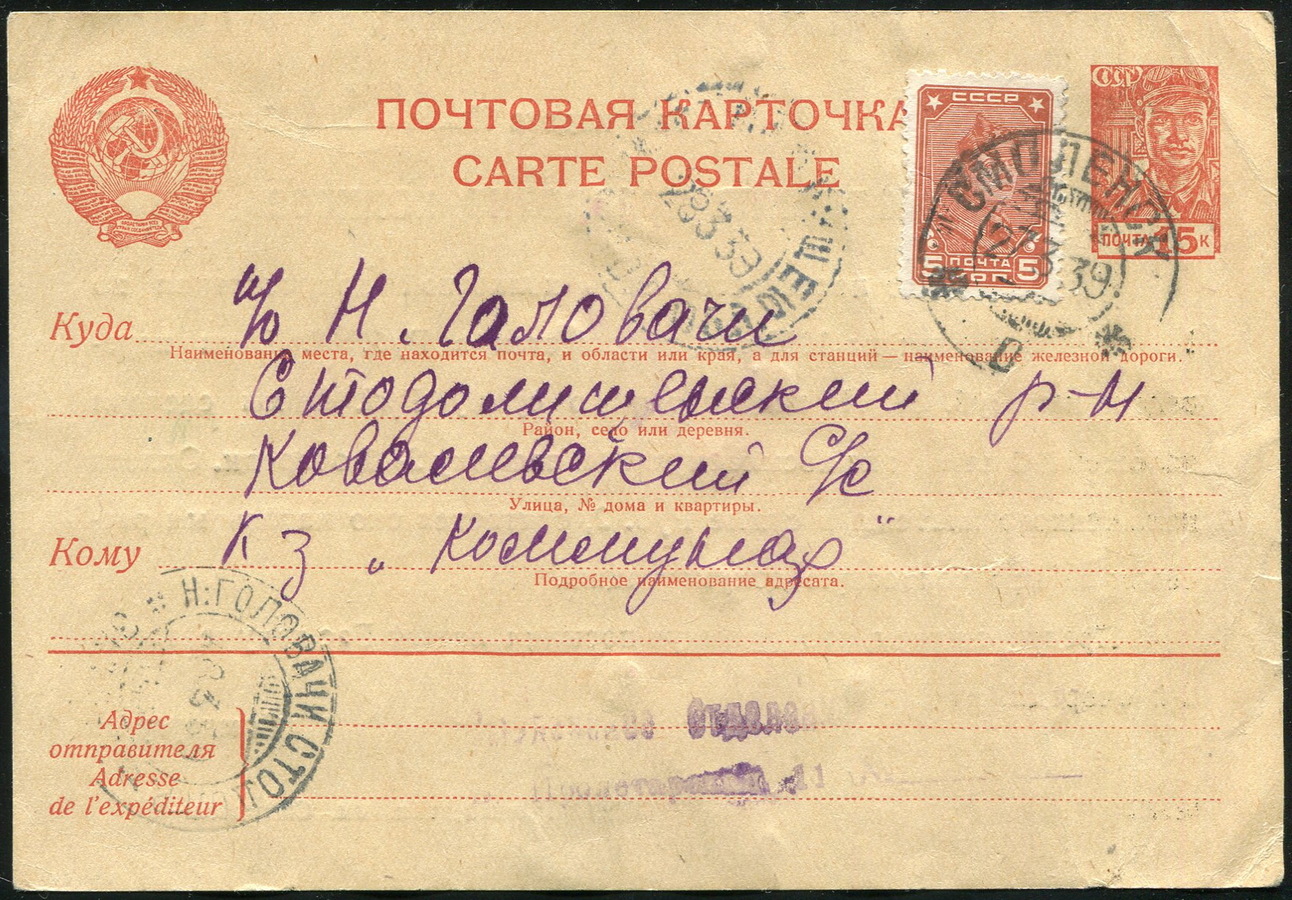 ПОЧТОВАЯ КАРТОЧКА
CARTE POSTALE
СССР
5 ПОЧТА 5
КОП
СССР
ПОЧТА 15 К
СМОЛЕНСК
27 3 39
28 3 39
Куда п/о Н. Галовачи
Наименование места, где находится почта, и области или края, а для станций — наименование железной дороги.
Стодолищенский р-н
Район, село или деревня.
Ковалевский с/с
Улица, № дома и квартиры.
Кому К з „Коммунар"
Подробное наименование адресата.
Н. ГОЛОВАЧИ СТОД
Адрес
отправителя
Adresse
de l'expéditeur
Отделен
11